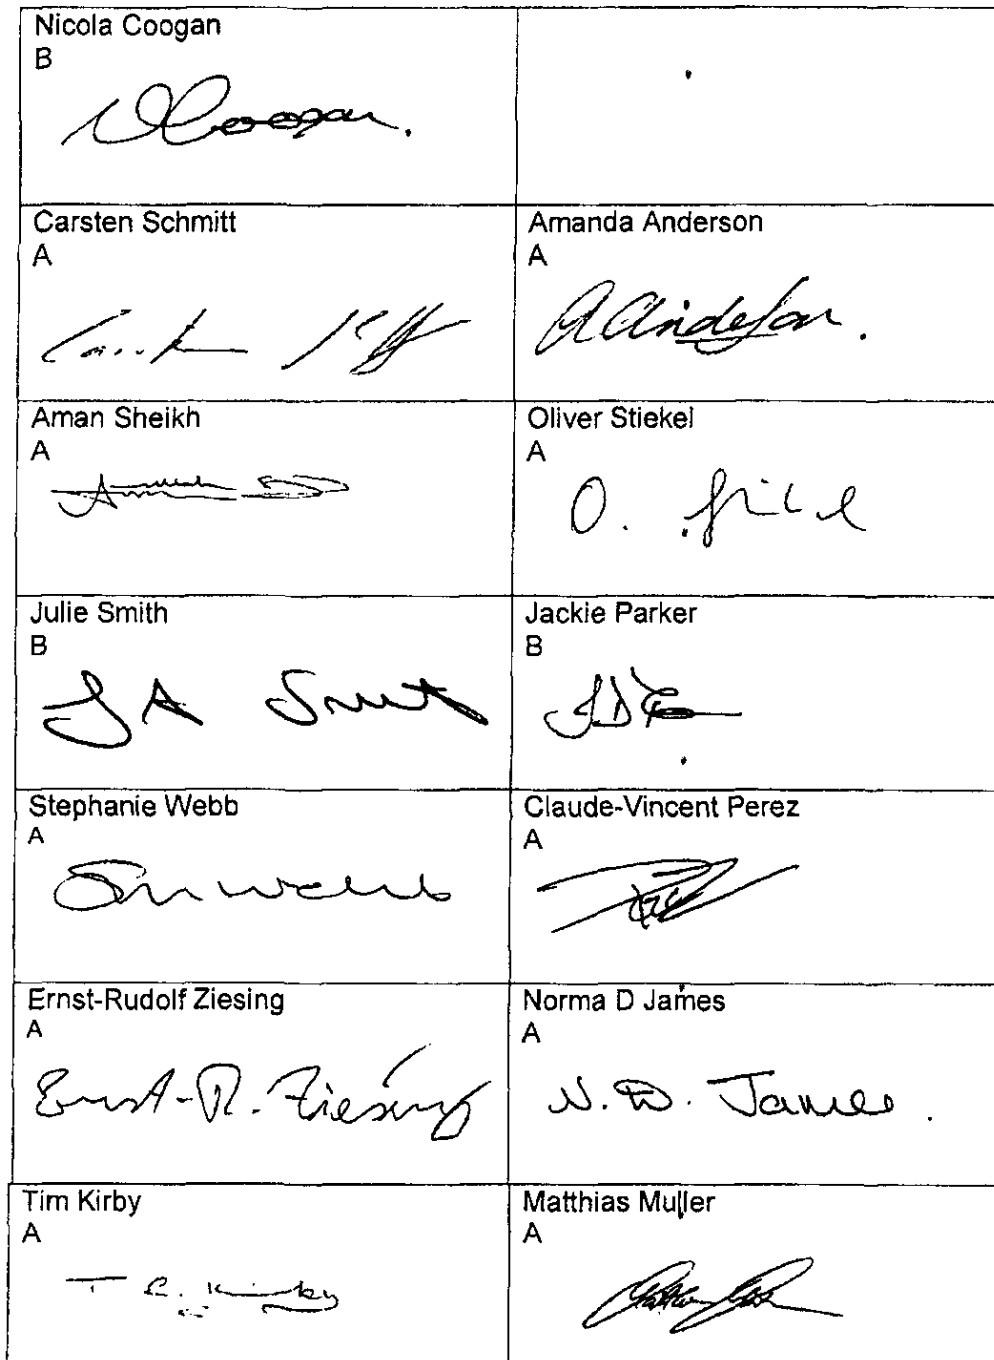 Nicola Coogan
B
NCoogan.
Carsten Schmitt
A
Amanda Anderson
A
A Anderson.
Aman Sheikh
A
Oliver Stiekel
A
O.
Julie Smith
B
J A Smith
Jackie Parker
B
Stephanie Webb
A
SM Webb
Claude-Vincent Perez
A
Ernst-Rudolf Ziesing
A
Ernst-R. Ziesing
Norma D James
A
N. D. James.
Tim Kirby
A
T R. Kirby
Matthias Muller
A